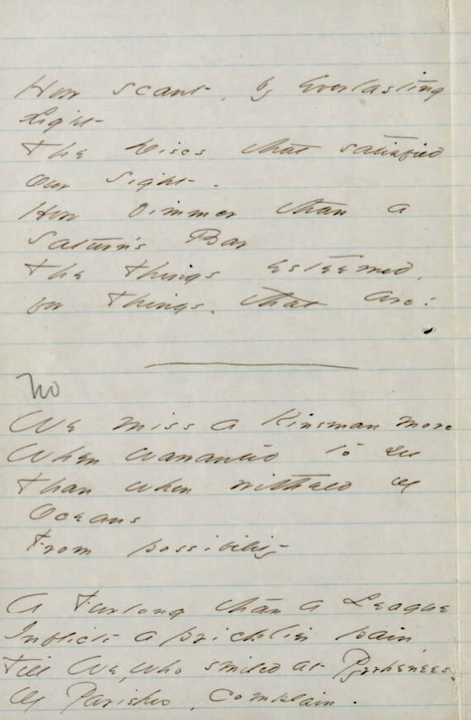 How scant, by Everlasting
Light
The Discs that satisfied
Our Sight.
How Dimmer than a
Saturn's Bar
The things esteemed,
for Things that are!
No
We miss a Kinsman more
When warranted to see
Than when withheld of
Oceans
From possibility
A Furlong than a League
Inflicts a pricklier pain,
Till We, who smiled at Pyrhenees.
Of Parishes, complain.